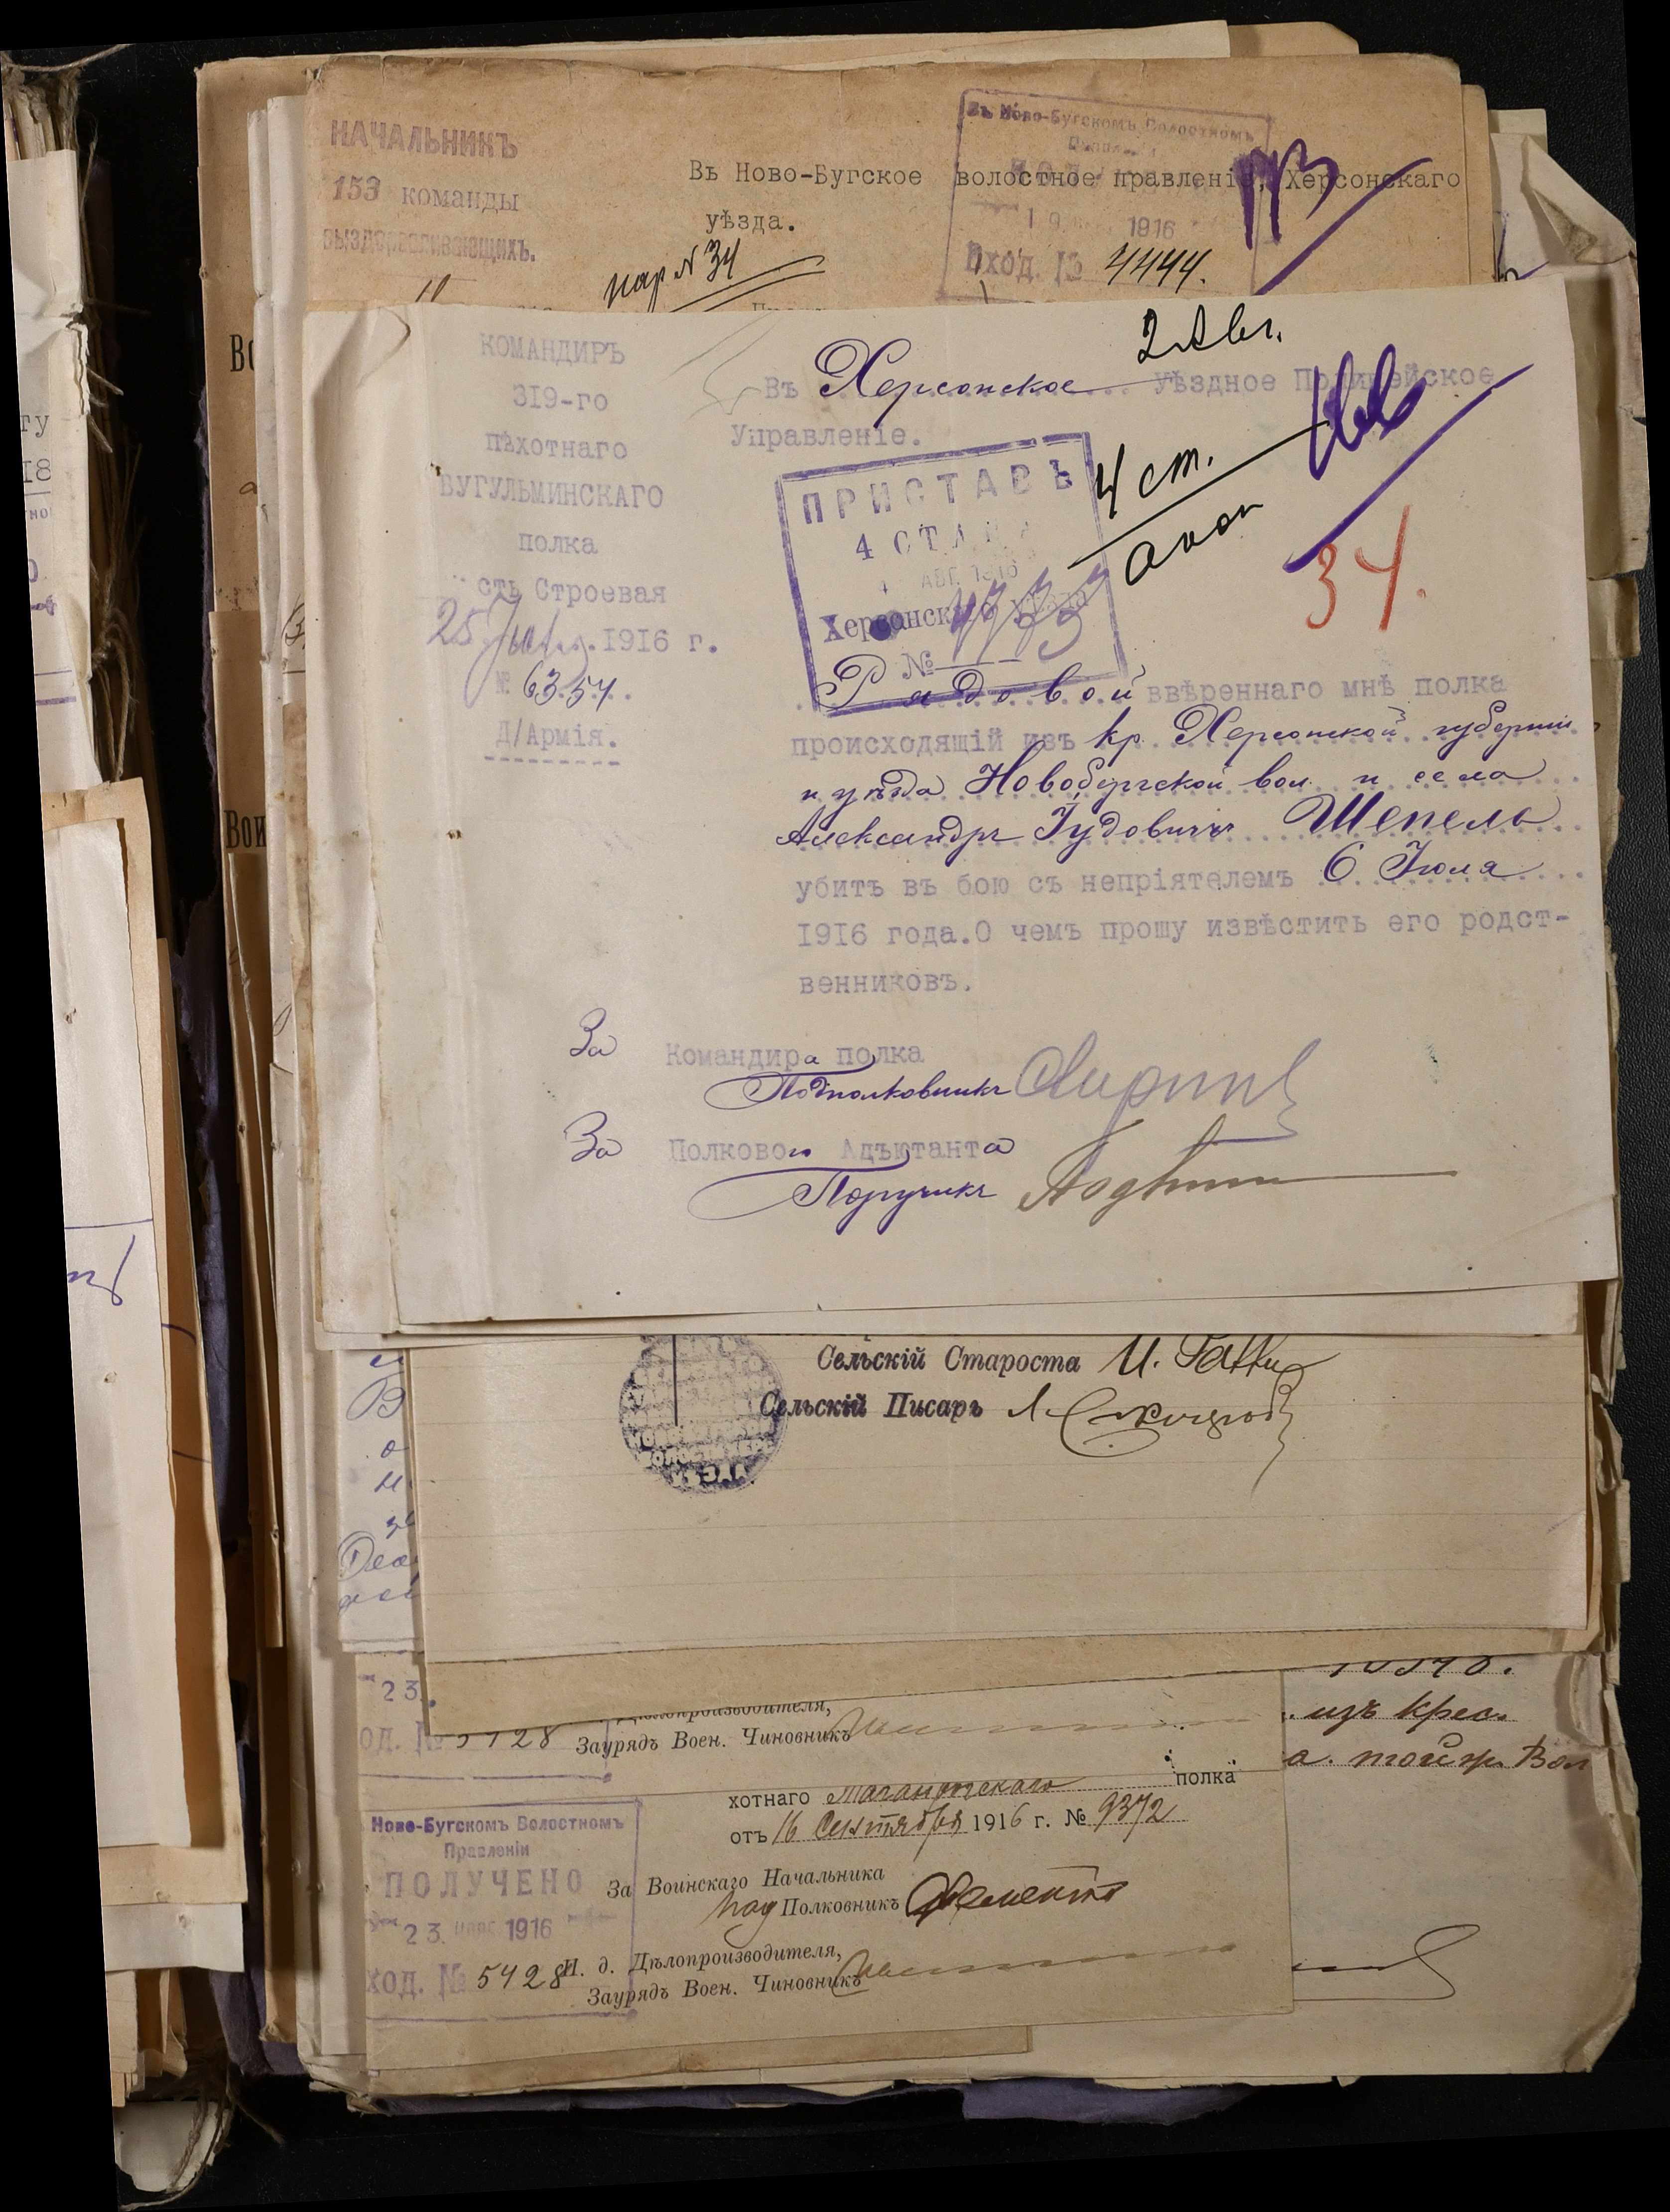 НАЧАЛЬНИКЪ
153 команды
выздоравливающихъ.
Въ Ново-Бугское волостное правленіе, Херсонскаго
уѣзда.
нар № 34
Въ Ново-Бугскомъ Волостномъ
19 1916
Вход. № 4444.
КОМАНДИРЪ
319-го
пѣхотнаго
БУГУЛЬМИНСКАГО
полка
сть Строевая
25 Іюля 1916 г.
№ 6354.
Д/Армія.
2 Авг.
Въ Херсонское Уѣздное Полицейское
Управленіе.
ПРИСТАВЪ
4 СТАНА
4 АВГ. 1916
Херсонскаго
№
4 ст.
34.
Рядовой ввѣреннаго мнѣ полка
происходящій изъ кр. Херсонской губерніи
и уѣзда Новобугской вол. и села
Александръ Іудовичъ Шепель
убитъ въ бою съ непріятелемъ 6 Іюля
1916 года. О чемъ прошу извѣстить его родст-
венниковъ.
За Командира полка
Подполковникъ
За Полковою Адъютанта
Поручикъ
Сельскій Староста И.
Сельскій Писарь
23
5428
Дѣлопроизводителя,
Заурядъ Воен. Чиновникъ
изъ крес.
а. той ж. Вол
хотнаго полка
отъ 16 Сентября 1916 г. № 9372
Ново-Бугскомъ Волостномъ
Правленіи
ПОЛУЧЕНО
23 1916
ход. № 5428
За Воинскаго Начальника
Под Полковникъ
И. д. Дѣлопроизводителя,
Заурядъ Воен. Чиновникъ